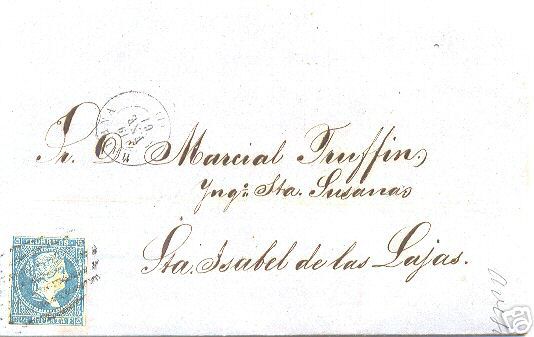 Sr. Dn. Marcial Truffin,
Yngo. Sta. Susanas
Sta. Isabel de las Lajas.
CORREOS